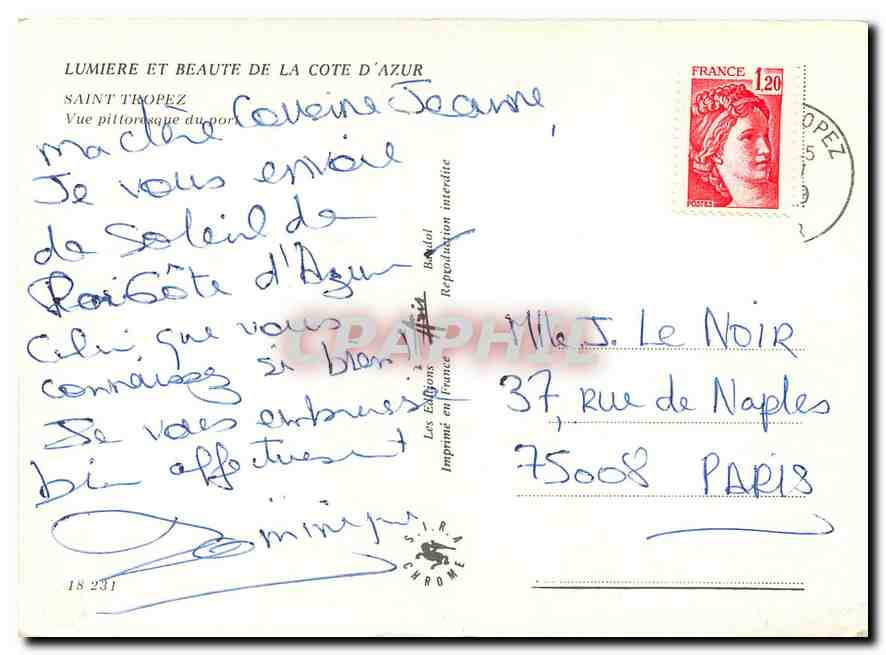 LUMIERE ET BEAUTE DE LA COTE D'AZUR
SAINT TROPEZ
Vue pittoresque du port
Ma chère Cousine Jeanne,
Je vous envoie
de Soleil de
Côte d'Azur
Celui que vous
connaissez si bien
Je vous embrasse
bien affectueusement
Dominique
18 231
Les Editions "Aris" Bandol
Imprimé en France Reproduction interdite
S.I.R.A
CHROME
FRANCE 1,20
POSTES
OPEZ
Mlle J. Le NOIR
37, Rue de Naples
75008 PARIS
CPAPHIL